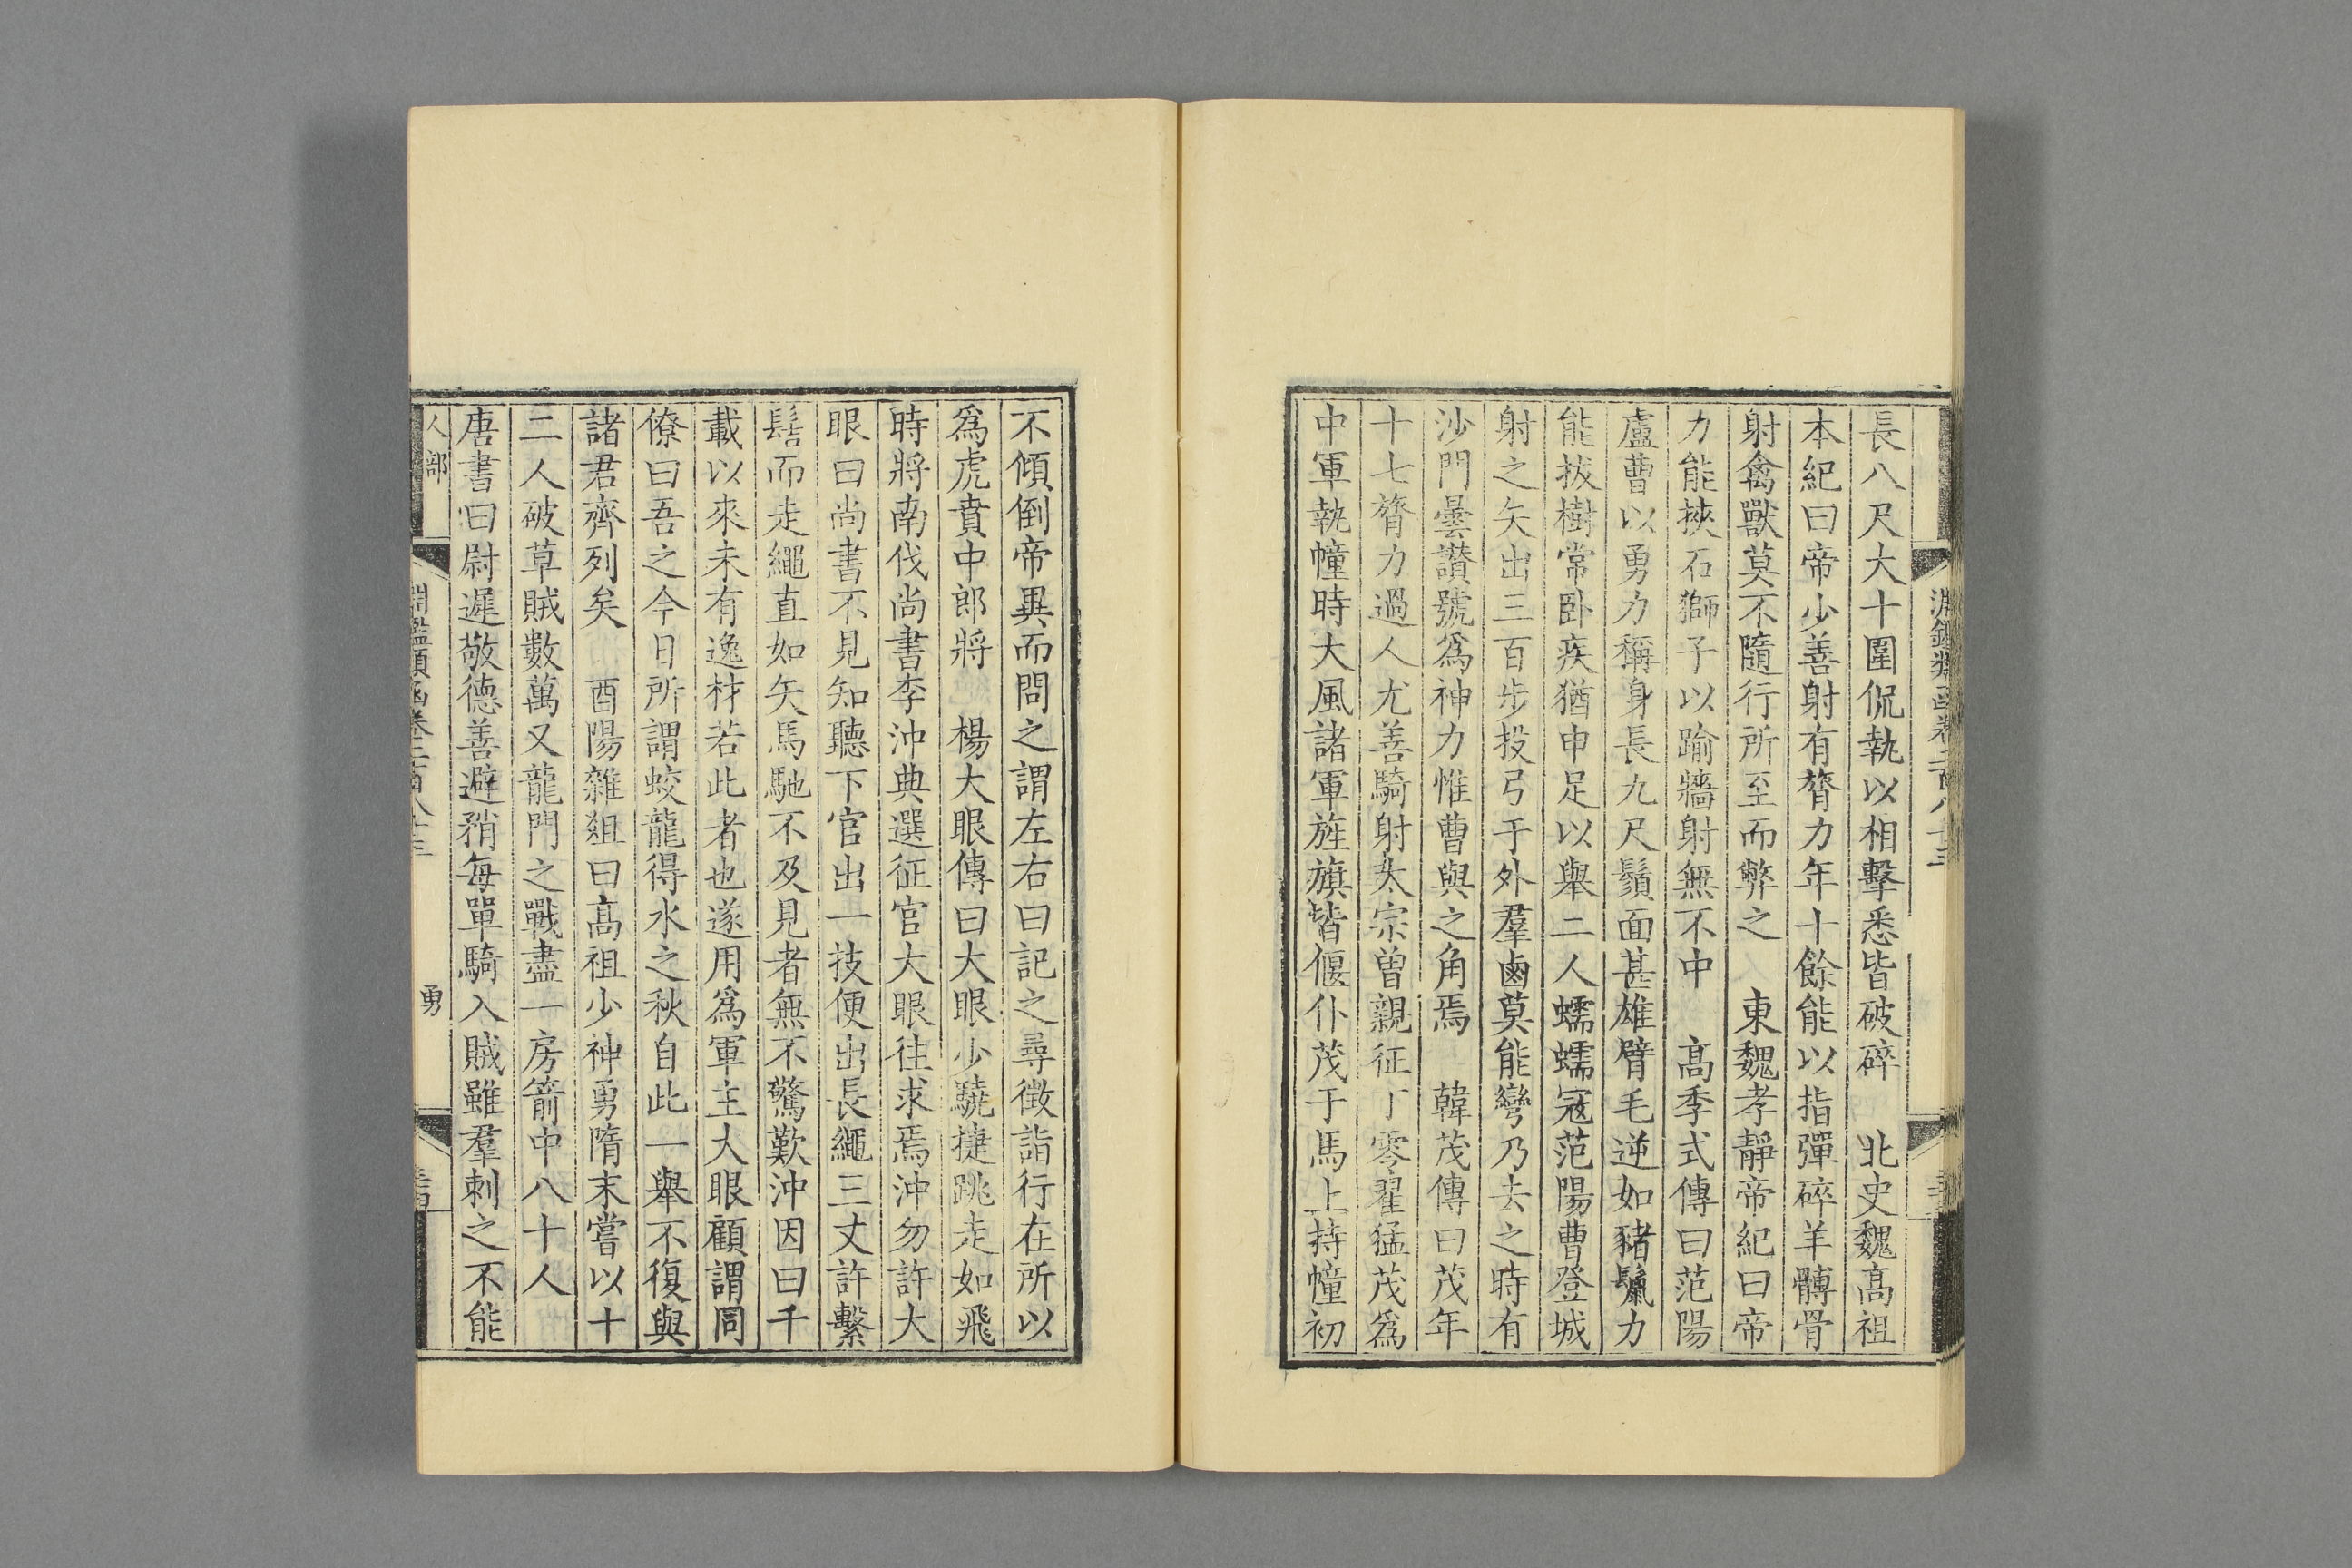 長八尺大十圍侃執以相擊悉皆破碎　北史魏高祖
本紀曰帝少善射有膂力年十餘能以指彈碎羊髆骨
射禽獸莫不隨行所至而斃之　東魏孝靜帝紀曰帝
力能挾石獅子以踰牆射無不中　高季式傳曰范陽
盧曹以勇力稱身長九尺鬚面甚雄臂毛逆如豬鬣力
能拔樹常卧疾猶申足以舉二人蠕蠕寇范陽曹登城
射之矢出三百步投弓于外羣鹵莫能彎乃去之時有
沙門曇讚號爲神力惟曹與之角焉　韓茂傳曰茂年
十七膂力過人尤善騎射太宗曾親征丁零翟猛茂爲
中軍執幢時大風諸軍旌旗皆偃仆茂于馬上持幢初
不傾倒帝異而問之謂左右曰記之尋徵詣行在所以
爲虎賁中郎將　楊大眼傳曰大眼少驍捷跳走如飛
時將南伐尚書李沖典選征官大眼往求焉沖勿許大
眼曰尚書不見知聽下官出一技便出長繩三丈許繫
髻而走繩直如矢馬馳不及見者無不驚歎沖因曰千
載以來未有逸材若此者也遂用爲軍主大眼顧謂同
僚曰吾之今日所謂蛟龍得水之秋自此一舉不復與
諸君齊列矣　酉陽雜俎曰高祖少神勇隋末嘗以十
二人破草賊數萬又龍門之戰盡一房箭中八十人
唐書曰尉遲敬德善避矟每單騎入賊雖羣刺之不能
人部
淵鑑類函卷二百八十三
勇